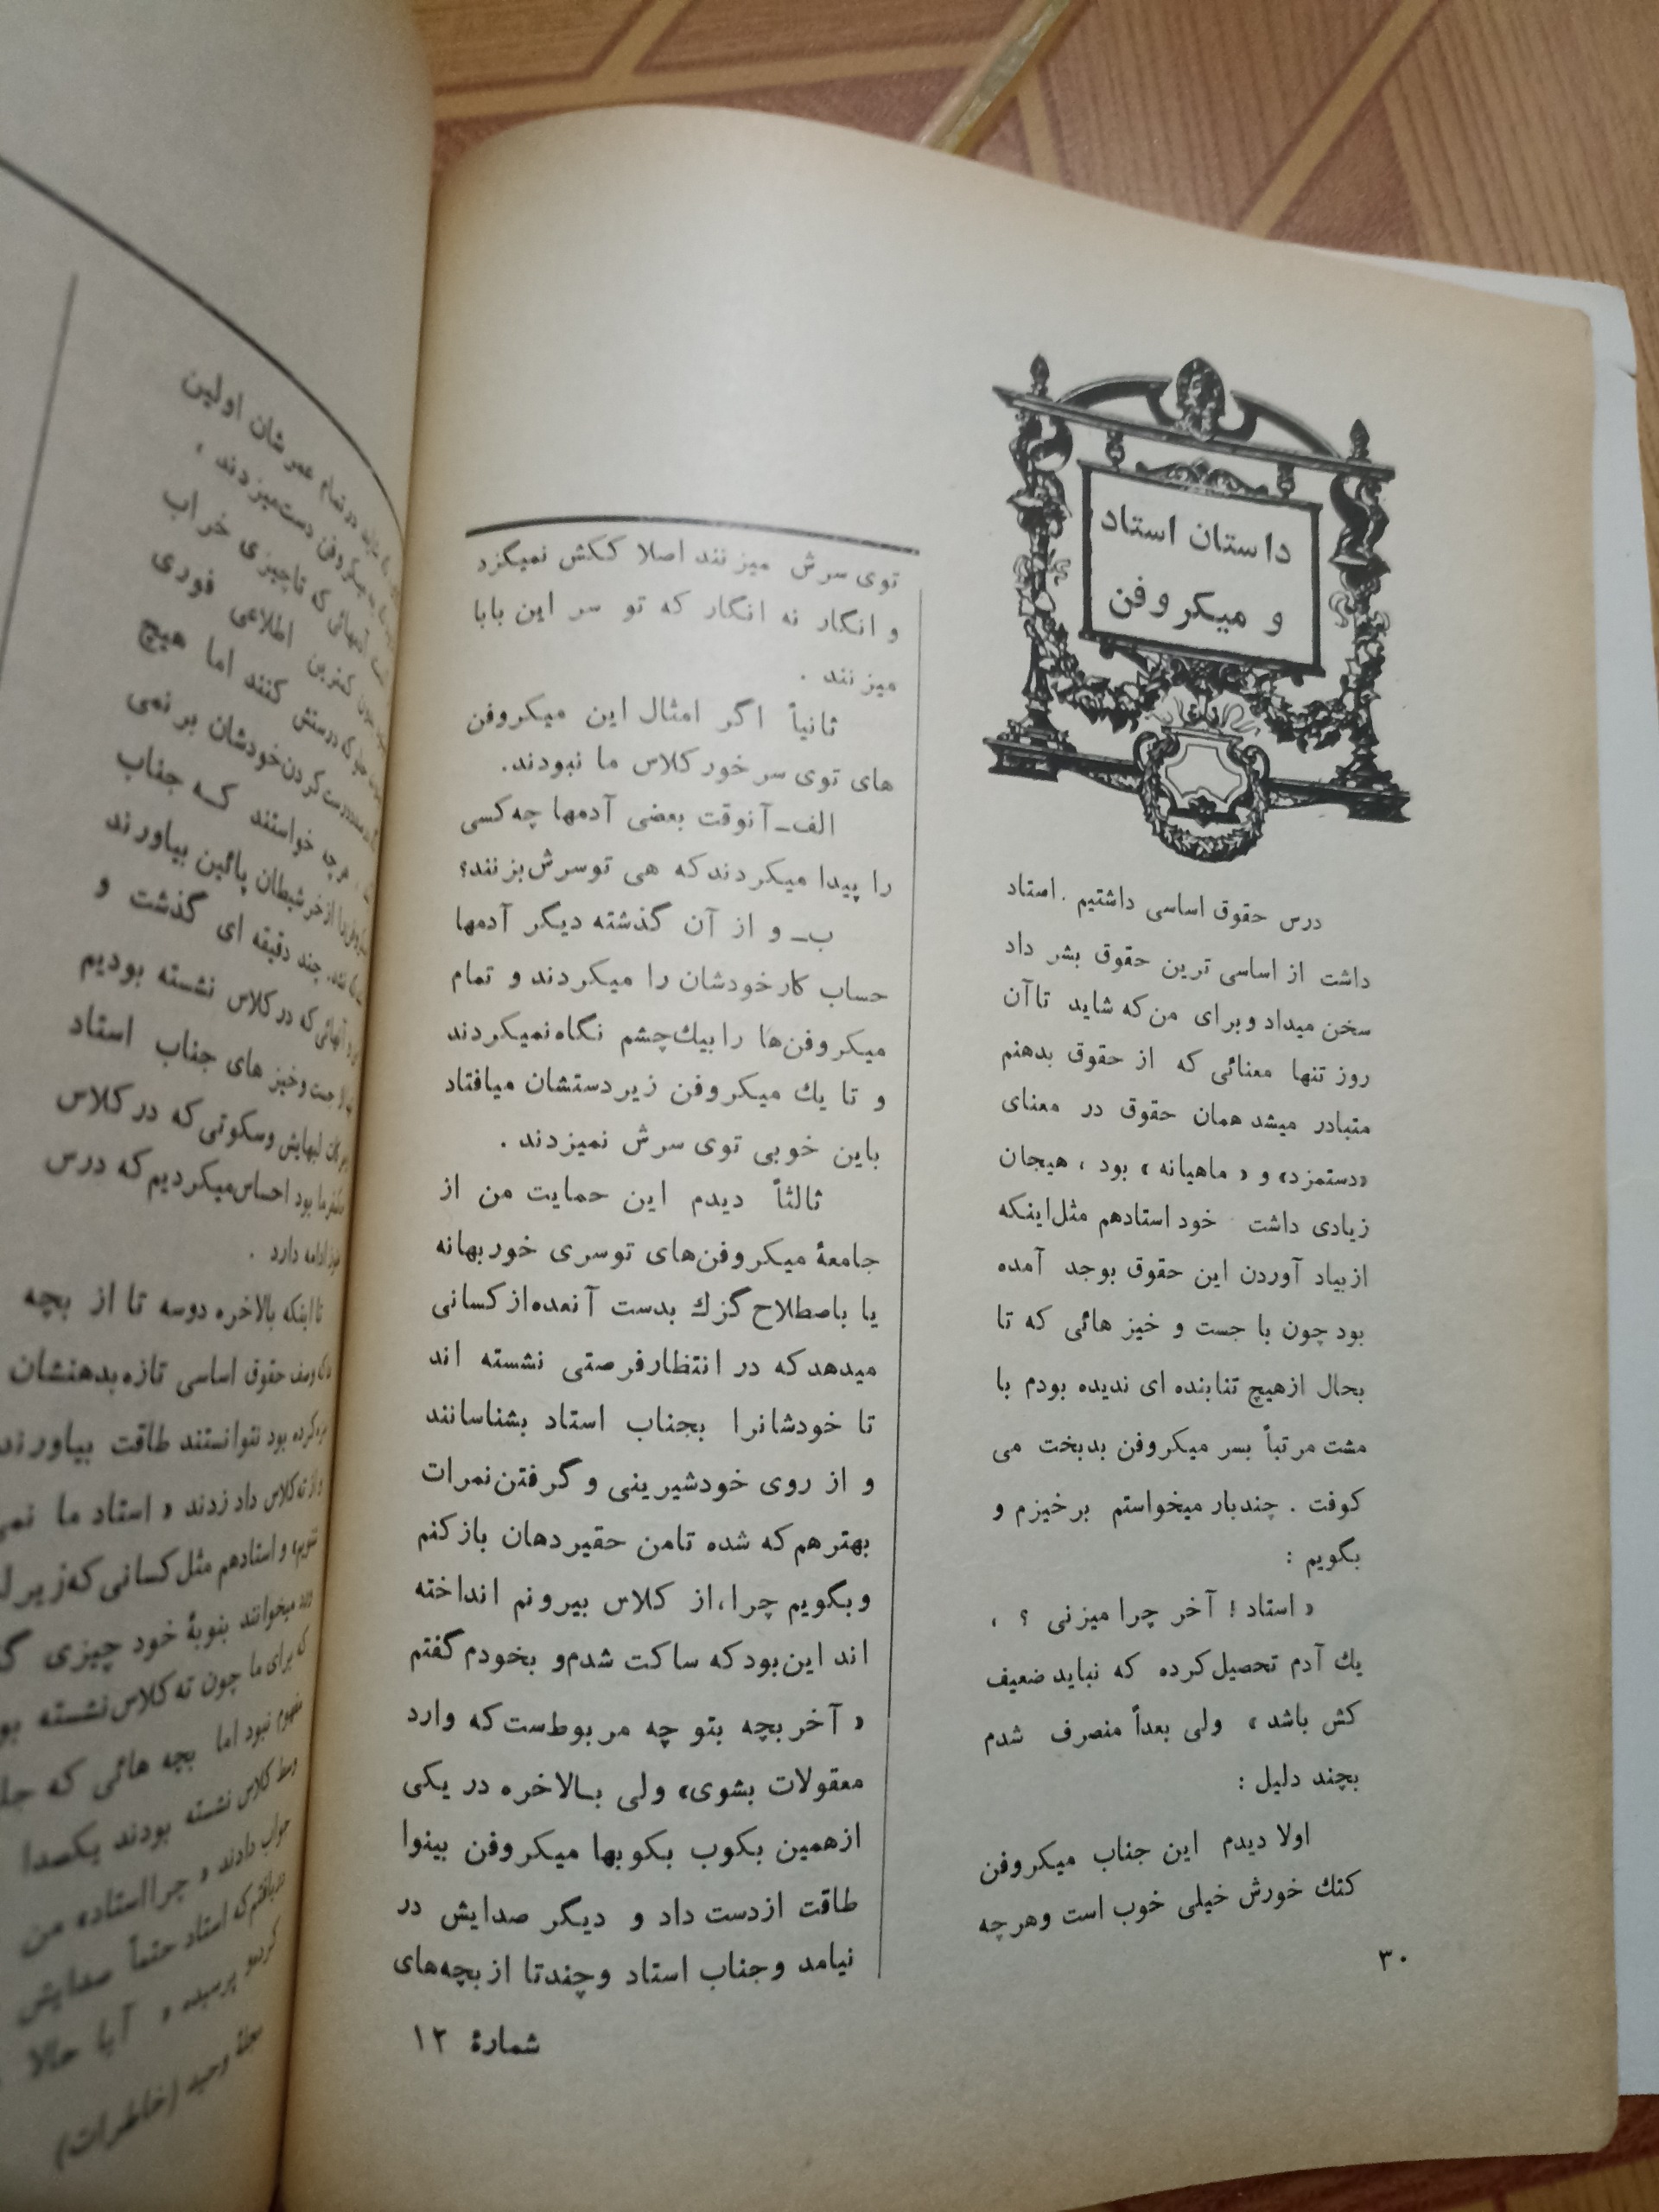 داستان استاد
و میکروفن
درس حقوق اساسی داشتیم . استاد
داشت از اساسی ترین حقوق بشر داد
سخن میداد وبرای من‌که شاید تاآن
روز تنها معنائی که از حقوق بدهنم
متبادر میشد همان حقوق در معنای
«دستمزد» و « ماهیانه » بود ، هیجان
زیادی داشت خود استادهم مثل‌اینکه
ازبیاد آوردن این حقوق بوجد آمده
بود چون با جست و خیز هائی که تا
بحال ازهیچ تنابنده ای ندیده بودم با
مشت مرتباً بسر میکروفن بدبخت می
کوفت . چندبار میخواستم برخیزم و
بگویم :
« استاد ! آخر چرا میزنی ؟ ،
یك آدم تحصیل‌کرده که نباید ضعیف
کش باشد » ولی بعداً منصرف شدم
بچند دلیل :
اولا دیدم این جناب میکروفن
کتك خورش خیلی خوب است وهرچه
۳۰
توی سرش میزنند اصلا ککش نمیگزد
و انگار نه انگار که تو سر این بابا
میزنند .
ثانیاً اگر امثال این میکروفن
های توی سرخور کلاس ما نبودند.
الف_آنوقت بعضی آدمها چه‌کسی
را پیدا میکردندکه هی توسرش‌بزنند؟
ب_ و از آن گذشته دیگر آدمها
حساب کارخودشان را میکردند و تمام
میکروفن‌ها را بیك‌چشم نگاه‌نمیکردند
و تا یك میکروفن زیردستشان میافتاد
باین خوبی توی سرش نمیزدند .
ثالثاً دیدم این حمایت من از
جامعهٔ میکروفن‌های توسری خوربهانه
یا باصطلاح گزك بدست آنعده‌ازکسانی
میدهدکه در انتظارفرصتی نشسته اند
تا خودشانرا بجناب استاد بشناسانند
و از روی خودشیرینی و گرفتن‌نمرات
بهترهم‌که شده تامن حقیردهان بازکنم
وبگویم چرا،از کلاس بیرونم انداخته
اند این‌بودکه ساکت شدم‌و بخودم گفتم
« آخربچه بتو چه مربوط‌ست‌که وارد
معقولات بشوی» ولی بـالاخره در یکی
ازهمین بکوب بکوبها میکروفن بینوا
طاقت ازدست داد و دیگر صدایش در
نیامد وجناب استاد وچندتا ازبچه‌های
شمارهٔ ۱۲
در تمام عمر شان اولین
میکروفن دست‌میزدند ،
آنهائی که تاچیزی خراب
کمترین اطلاعی فوری
درستش کنند اما هیچ
درست کردن‌خودشان بر نمی
هرچه خواستند کـه جناب
را ازخرشیطان پائین بیاورند
چند دقیقه ای گذشت و
آنهائی‌که در کلاس نشسته بودیم
جست وخیز های جناب استاد
لبهایش وسکوتی‌که در کلاس
بود احساس‌میکردیم‌که درس
ادامه دارد .
تا اینکه بالاخره دوسه تا از بچه
وصف حقوق اساسی تازه بدهنشان
کرده بود نتوانستند طاقت بیاورند
ته‌کلاس داد زدند « استاد ما
و استادهم مثل‌کسانی که‌زیر
میخوانند بنوبهٔ خود چیزی
که برای ما چون ته کلاس‌نشسته
مفهوم نبود اما بچه هائی که
وسط کلاس نشسته بودند یکصدا
جواب دادند « چرااستاد» من
که استاد حتماً صدایش
پرسیده « آیا حالا
مجلهٔ وحید (خاطرات)